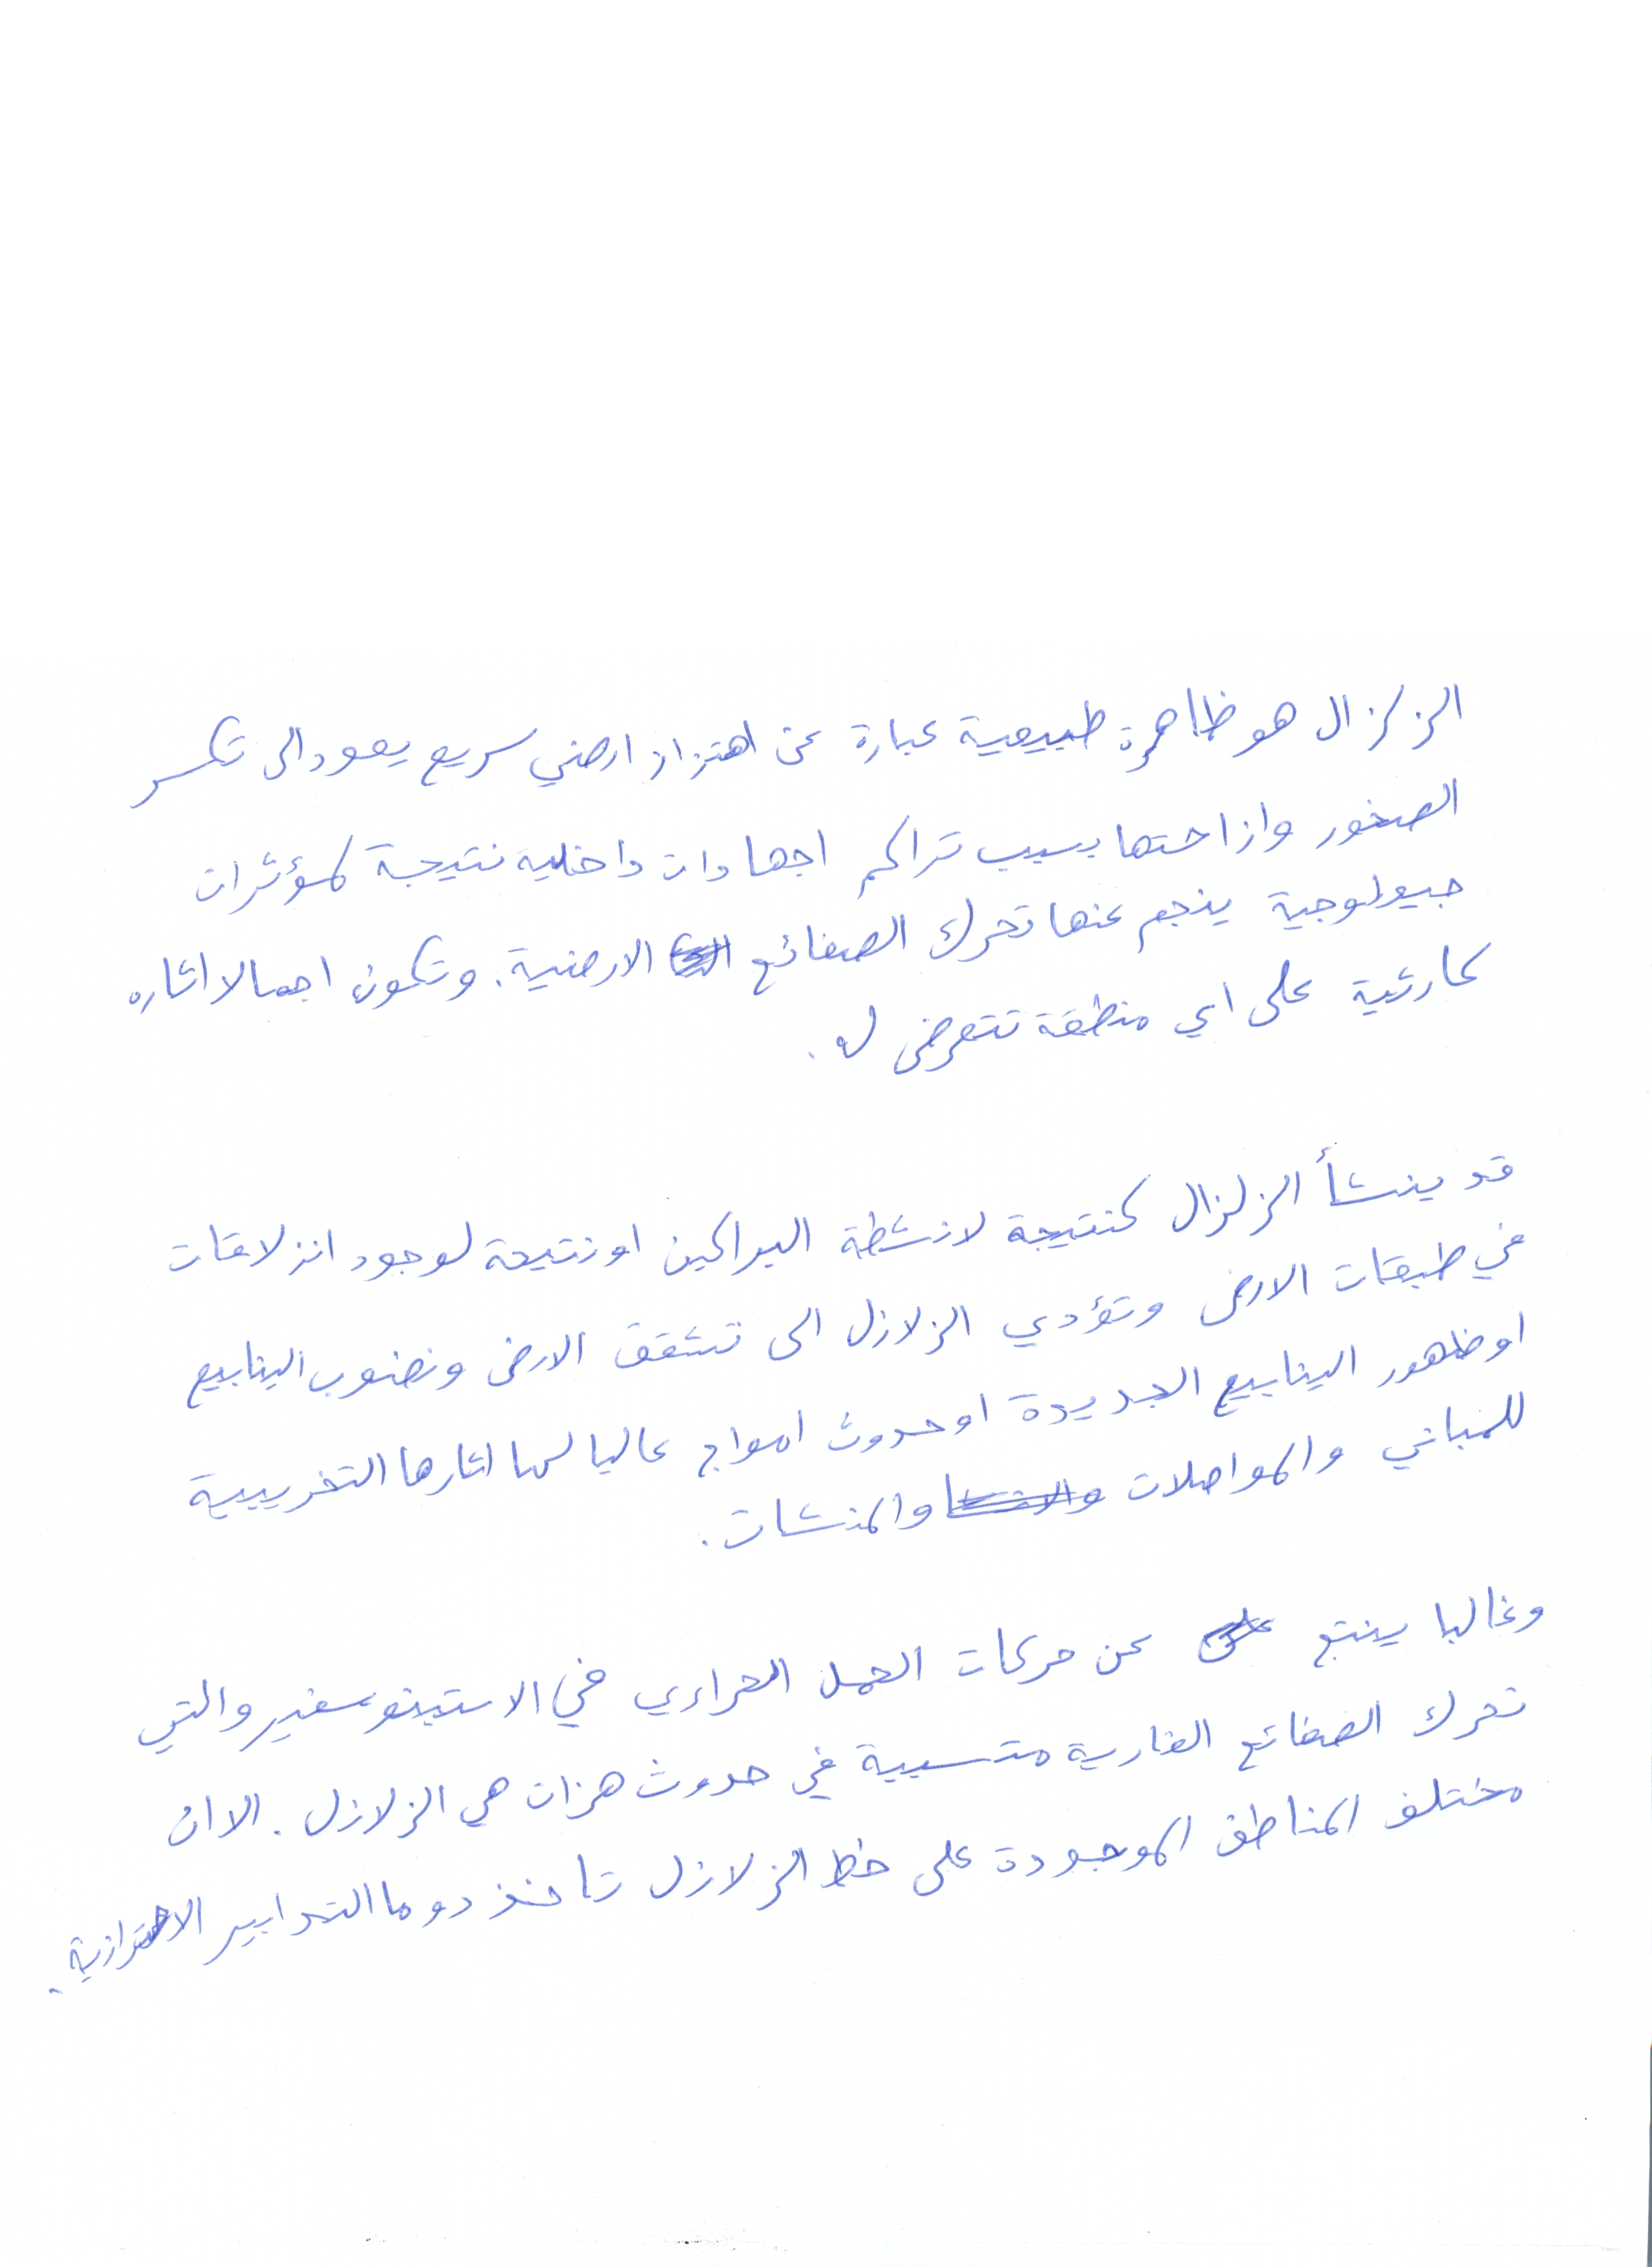 الزلزال هو ظاهرة طبيعية عبارة عن اهتزاز ارضي سريع يعود الى تكسر
الصخور وازاحتها بسبب تراكم اجهادات داخلية نتيجة لمؤثرات
جيولوجية ينجم عنها تحرك الصفائح الارضية. وتكون اجمالا اثاره
كارثية على اي منطقة تتعرض له.
قد ينشأ الزلزال كنتيجة لانشطة البراكين او نتيجة لوجود انزلاقات
في طبقات الارض وتؤدي الزلازل الى تشقق الارض ونضوب الينابيع
او ظهور الينابيع الجديدة او حدوث امواج عاليا لها اثارها التخريبية
للمباني والمواصلات والمنشات.
وغالبا ينتج عن حركات الحمل الحراري في الاستينوسفير والتي
تحرك الصفائح القارية متسببة في حدوث هزات هي الزلازل. الا ان
مختلف المناطق الموجودة على خط الزلازل تاخذ دوما التدابير الاحترازية.